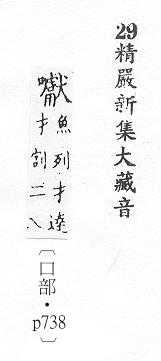 29精嚴新集大藏音
魚列才達
才割二八
〔口部・p738〕